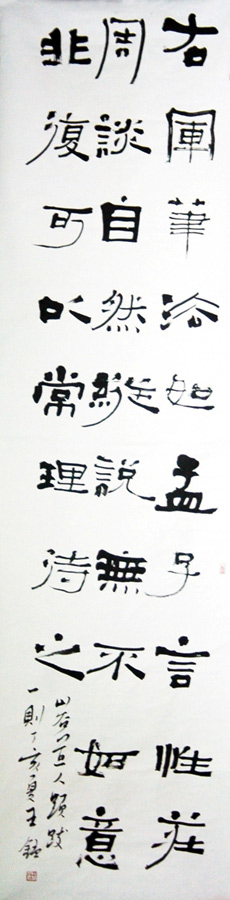 右軍筆法如孟子言性莊
周談自然縱說無不如意
非復可以常理待之
山谷道人題跋
一則丁亥夏王